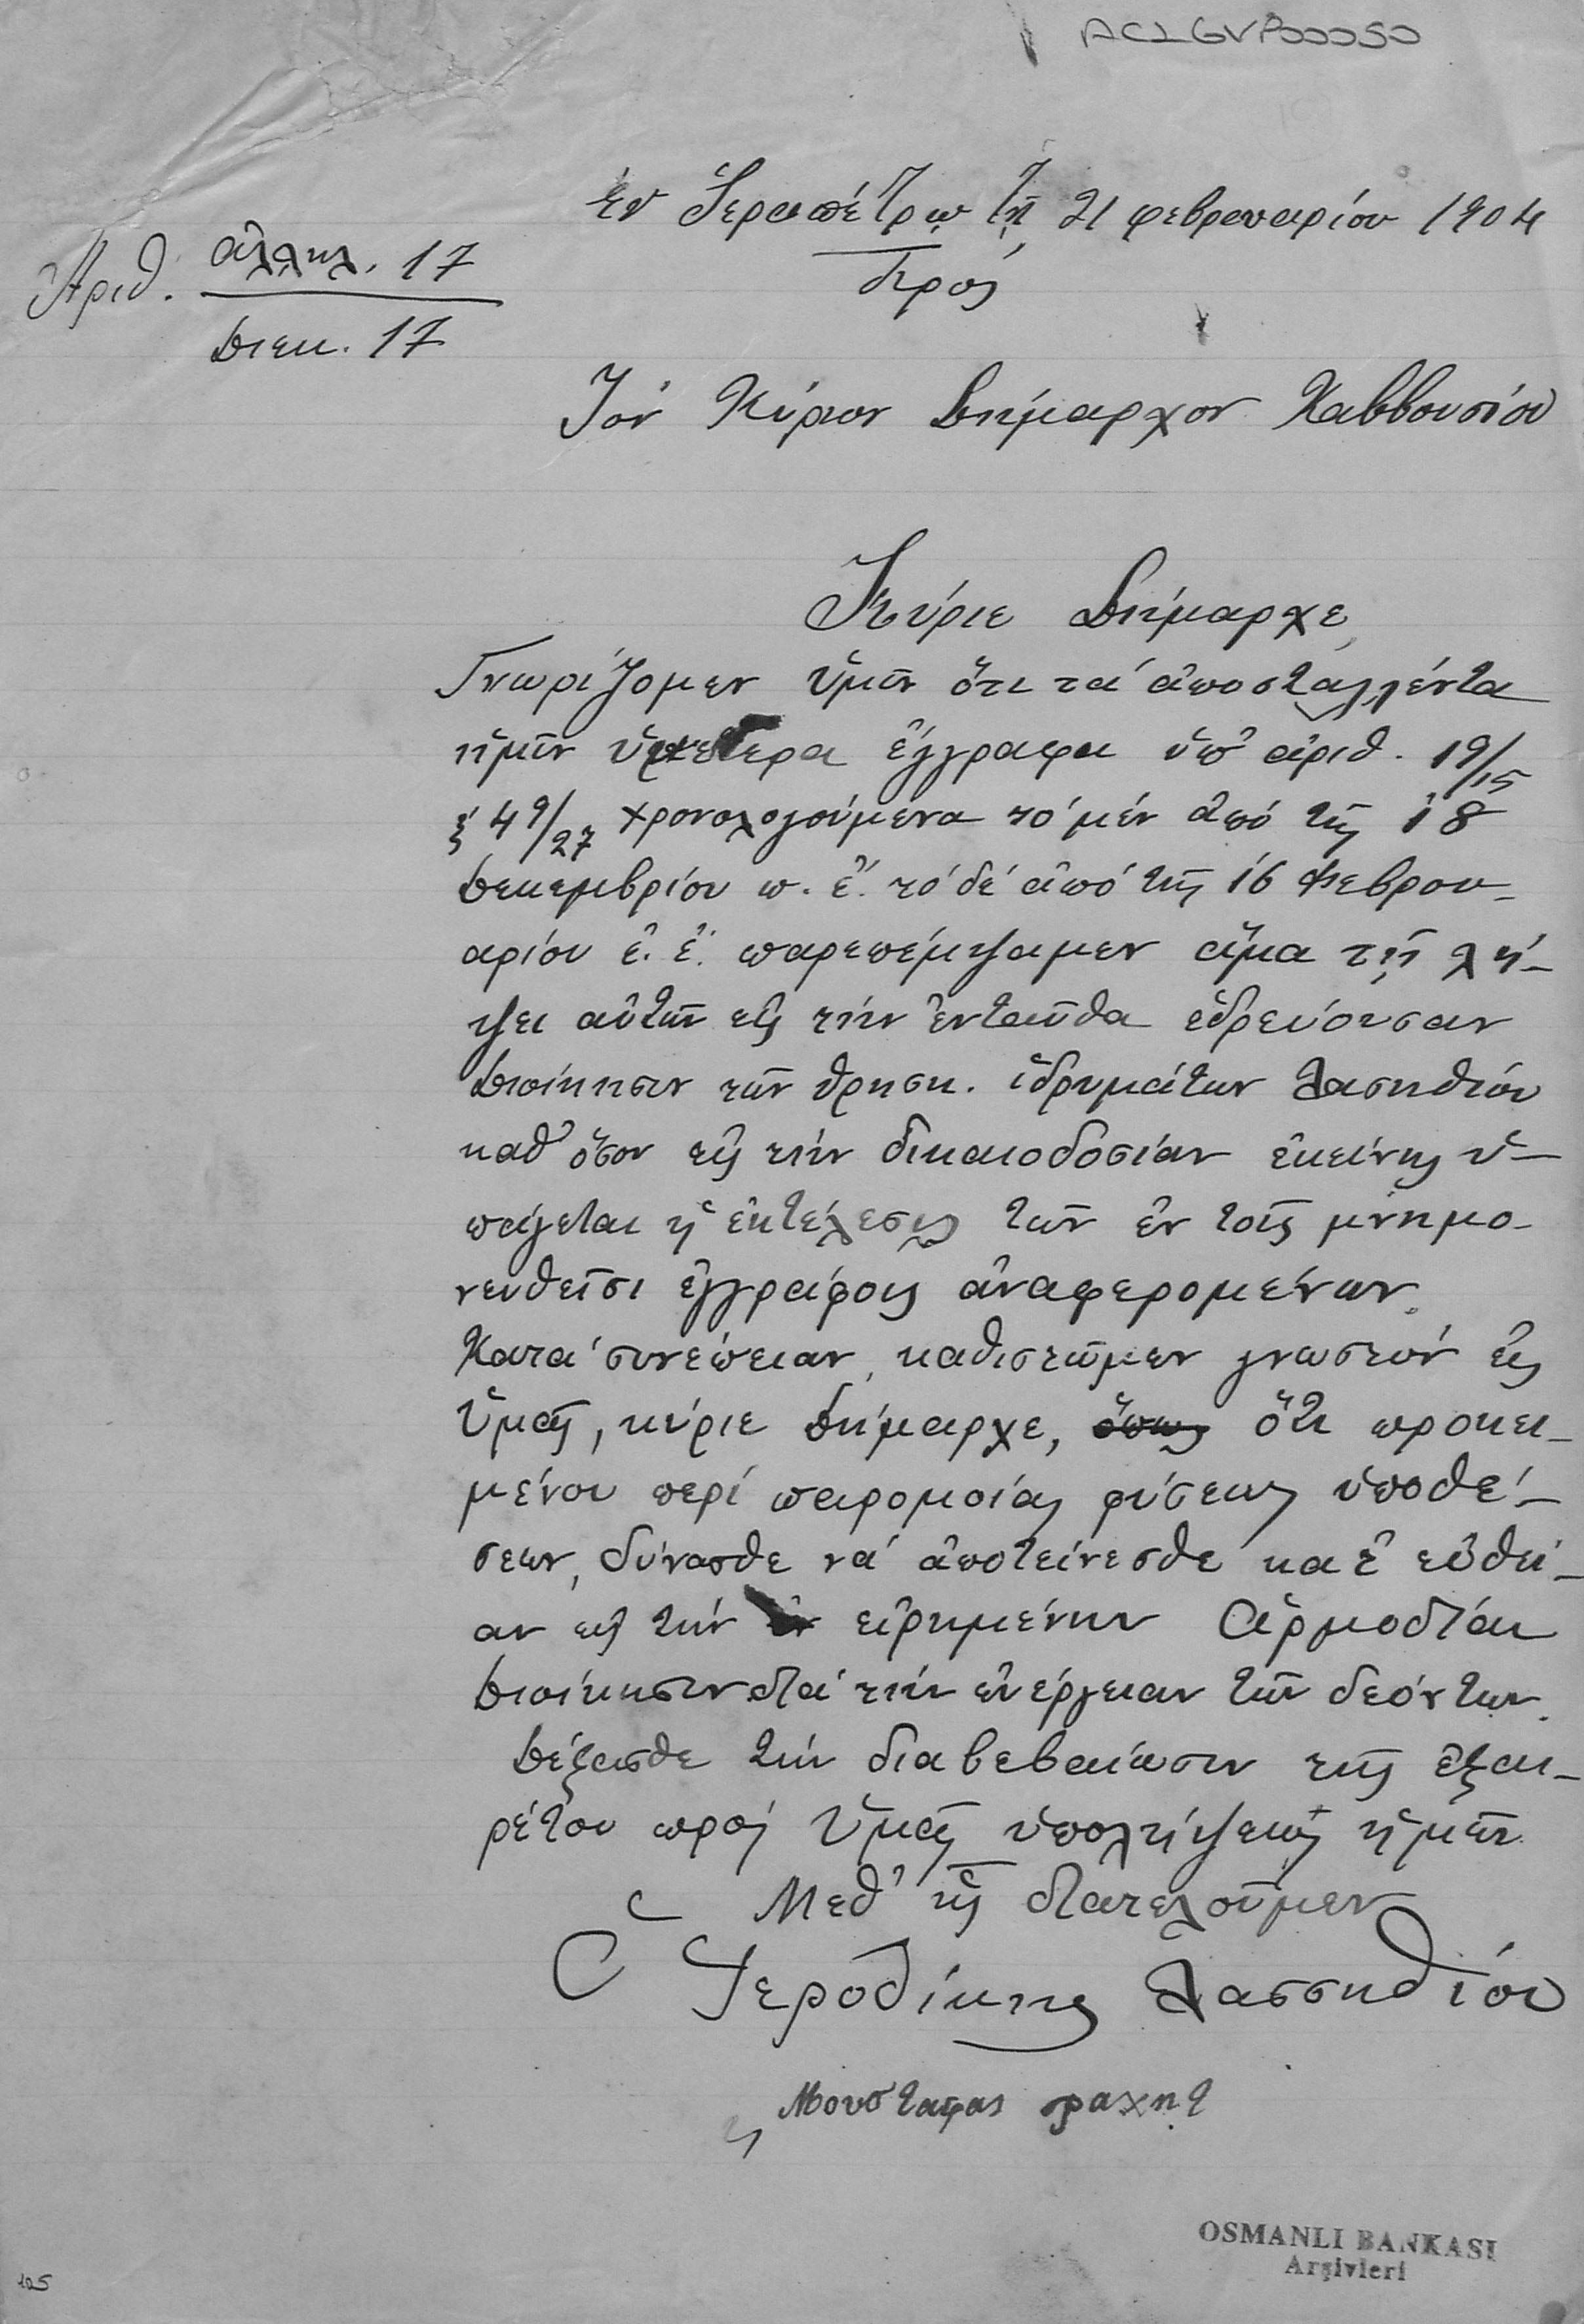 ACLGVP00050
Ἐν Ἱεραπέτρᾳ τῇ 21 φεβρουαρίου 1904
Ἀριθ. ἀλληλ. 17
διεκ. 17
Πρὸς
Τὸν Κύριον Δήμαρχον Καββουσίου
Κύριε Δήμαρχε,
Γνωρίζομεν ὑμῖν ὅτι τὰ ἀποσταλέντα
ἡμῖν ὑμέτερα ἔγγραφα ὑπ' ἀριθ. 19/15
ἢ 49/27 χρονολογούμενα τὸ μὲν ἀπὸ τῆς 18
Δεκεμβρίου π. ἔ. τὸ δὲ ἀπὸ τῆς 16 Φεβρου-
αρίου ἐ. ἔ. παρεπέμψαμεν ἅμα τῇ λή-
ψει αὐτῶν εἰς τὴν ἐνταῦθα ἑδρεύουσαν
Διοίκησιν τῶν θρησκ. ἱδρυμάτων Λασηθίου
καθ' ὅσον εἰς τὴν δικαιοδοσίαν ἐκείνης ὑ-
πάγεται ἡ ἐκτέλεσις τῶν ἐν τοῖς μνημο-
νευθεῖσι ἐγγράφοις ἀναφερομένων.
Κατὰ συνέπειαν, καθιστῶμεν γνωστὸν εἰς
Ὑμᾶς, κύριε Δήμαρχε, ὅπως ὅτι προκει-
μένου περὶ παρομοίας φύσεως ὑποθέ-
σεων, δύνασθε νὰ ἀποτείνεσθε κατ' εὐθεῖ-
αν εἰς τὴν ἐν εἰρημένην Ἁρμοδίαν
Διοίκησιν διὰ τὴν ἐνέργειαν τῶν δεόντων.
Δέξασθε τὴν διαβεβαίωσιν τῆς ἐξαι-
ρέτου πρὸς Ὑμᾶς ὑπολήψεως ἡμῶν
Μεθ' ἧς διατελοῦμεν
Ὁ Ἱεροδίκης Λασσηθίου
Μουσταφας
OSMANLI BANKASI
Arşivleri
105